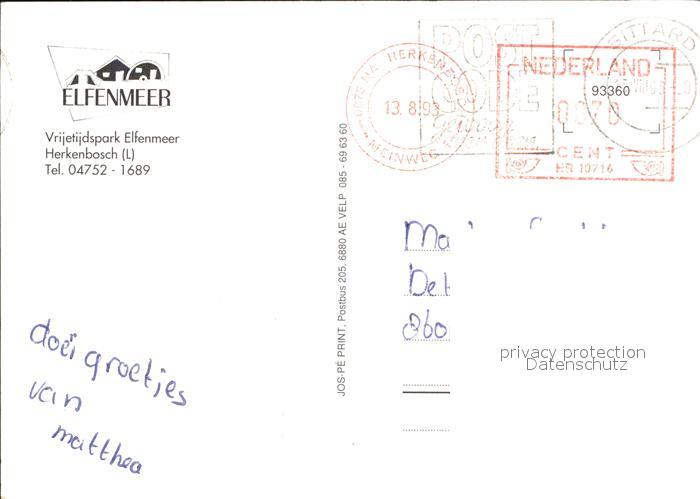 ELFENMEER
Vrijetijdspark Elfenmeer
Herkenbosch (L)
Tel. 04752 - 1689
doei groetjes
van
matthea
JOS-PÉ PRINT, Postbus 205, 6880 AE VELP 085 - 69 63 60
HERKENBOSCH
13. 8. 93
MEINWEG
POST
CODE
SITTARD
NEDERLAND
93360
0070
CENT
HR 10716
Ma
Det
860
privacy protection
Datenschutz